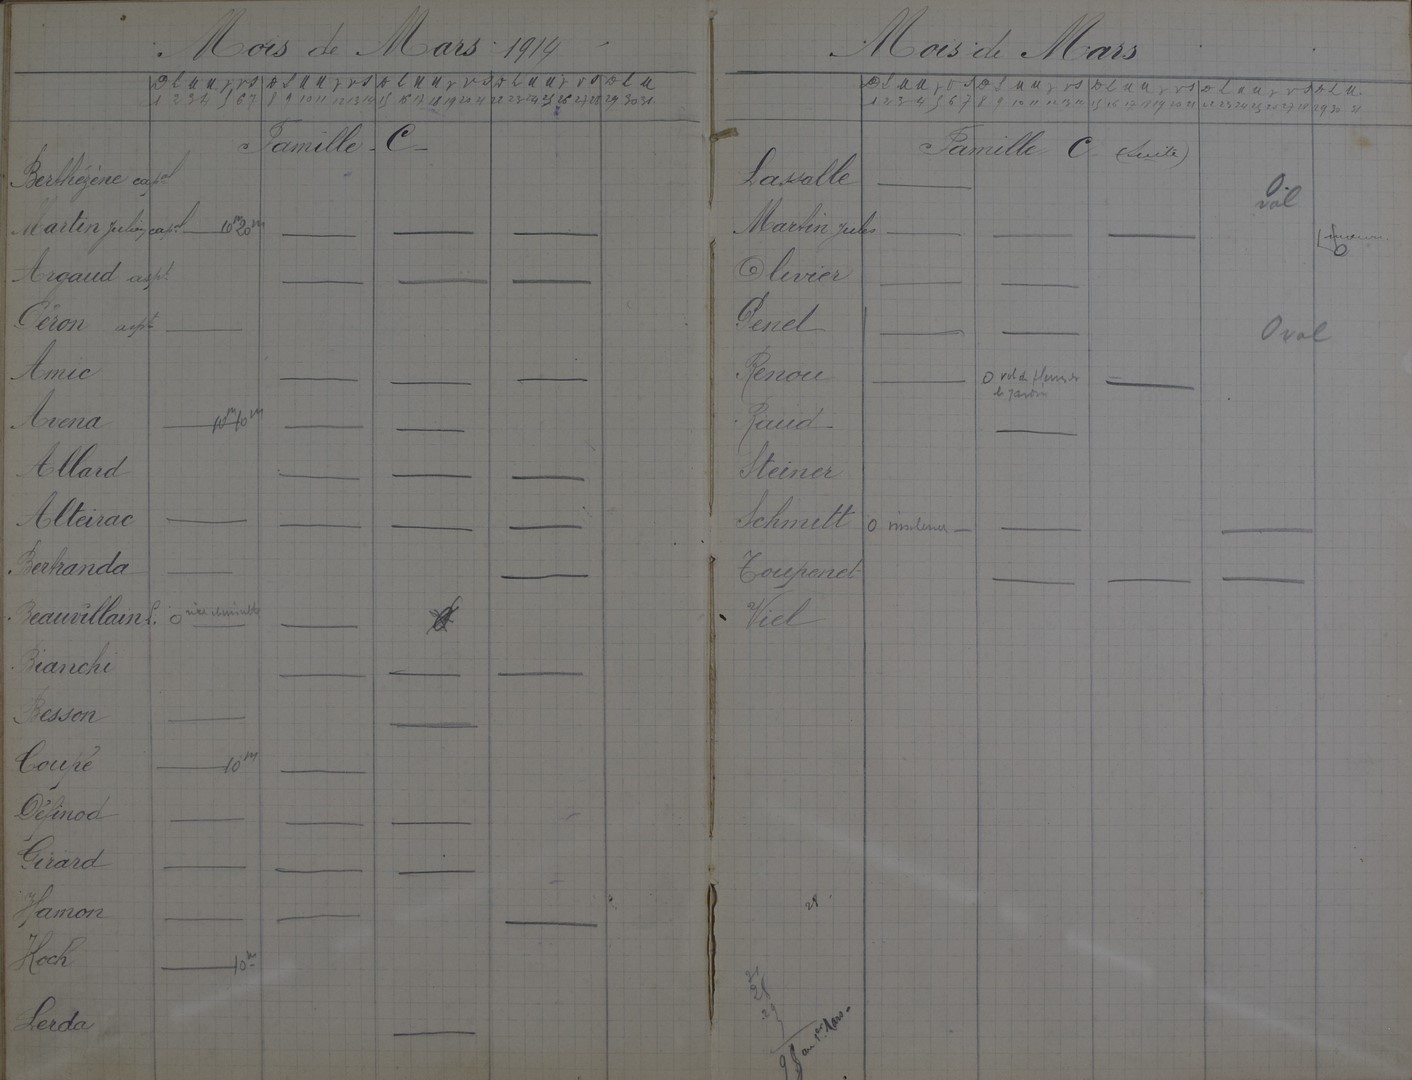 Mois de Mars 1914
D L M M J V S D L M M J V S D L M M J V S D L M M J V S D L M
1 2 3 4 5 6 7 8 9 10 11 12 13 14 15 16 17 18 19 20 21 22 23 24 25 26 27 28 29 30 31
Famille - C -
Berthézène capl
Martin Julien capl 10m 20m
Argaud aspt
Céron aspt
Amic
Avena 10m 10m
Allard
Alteirac
Bertranda
Beauvillain L. 0
Bianchi
Besson
Coupé 10m
Définod
Girard
Hamon
Koch 10m
Lerda
Mois de Mars
D L M M J V S D L M M J V S D L M M J V S D L M M J V S D L M
1 2 3 4 5 6 7 8 9 10 11 12 13 14 15 16 17 18 19 20 21 22 23 24 25 26 27 28 29 30 31
Famille C (Suite)
Lassalle 0
vol
Martin Jules
0
Olivier
Penel 0 vol
Renou 0 vol de
Raud
Steiner
Schmitt 0 insolence
Toupenet
Viel
28
28 au 1er Mars